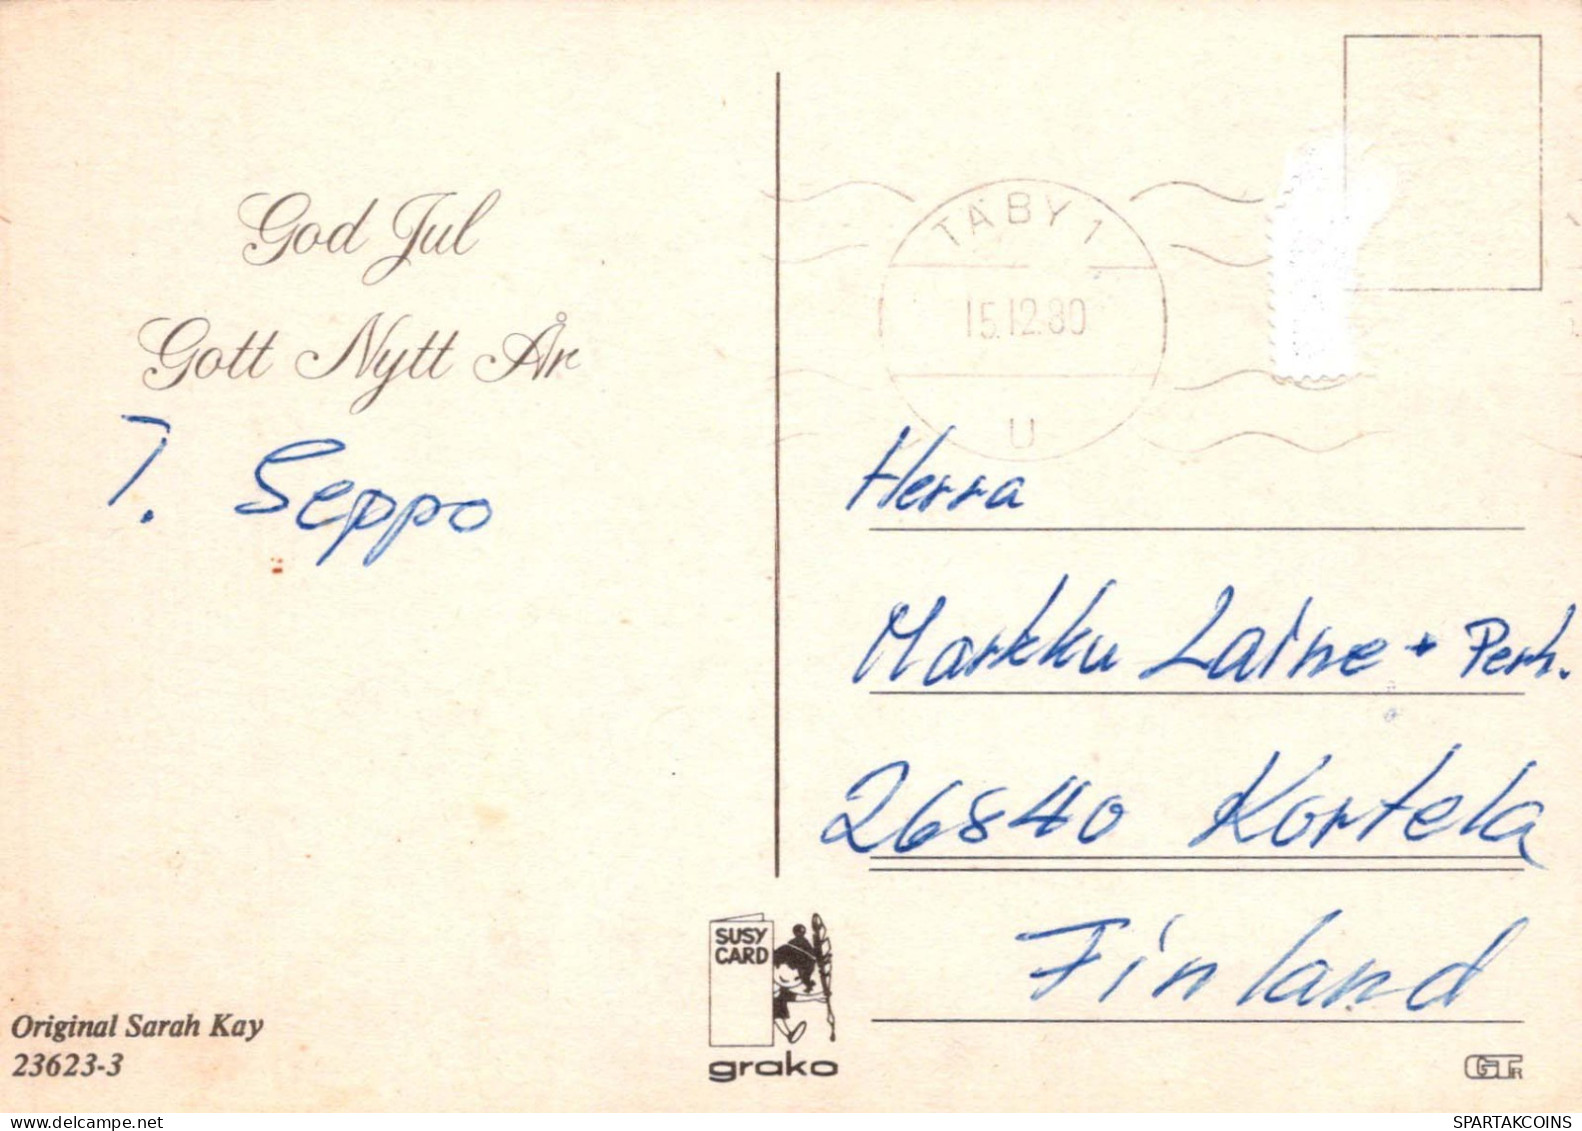 God Jul
Gott Nytt År
T. Seppo
TÄBY 1
15.12.80
U
Herra
Markku Laine + Perh.
26840 Kortela
Finland
SUSY
CARD
grako
Original Sarah Kay
23623-3
GTR
SPARTAKCOINS